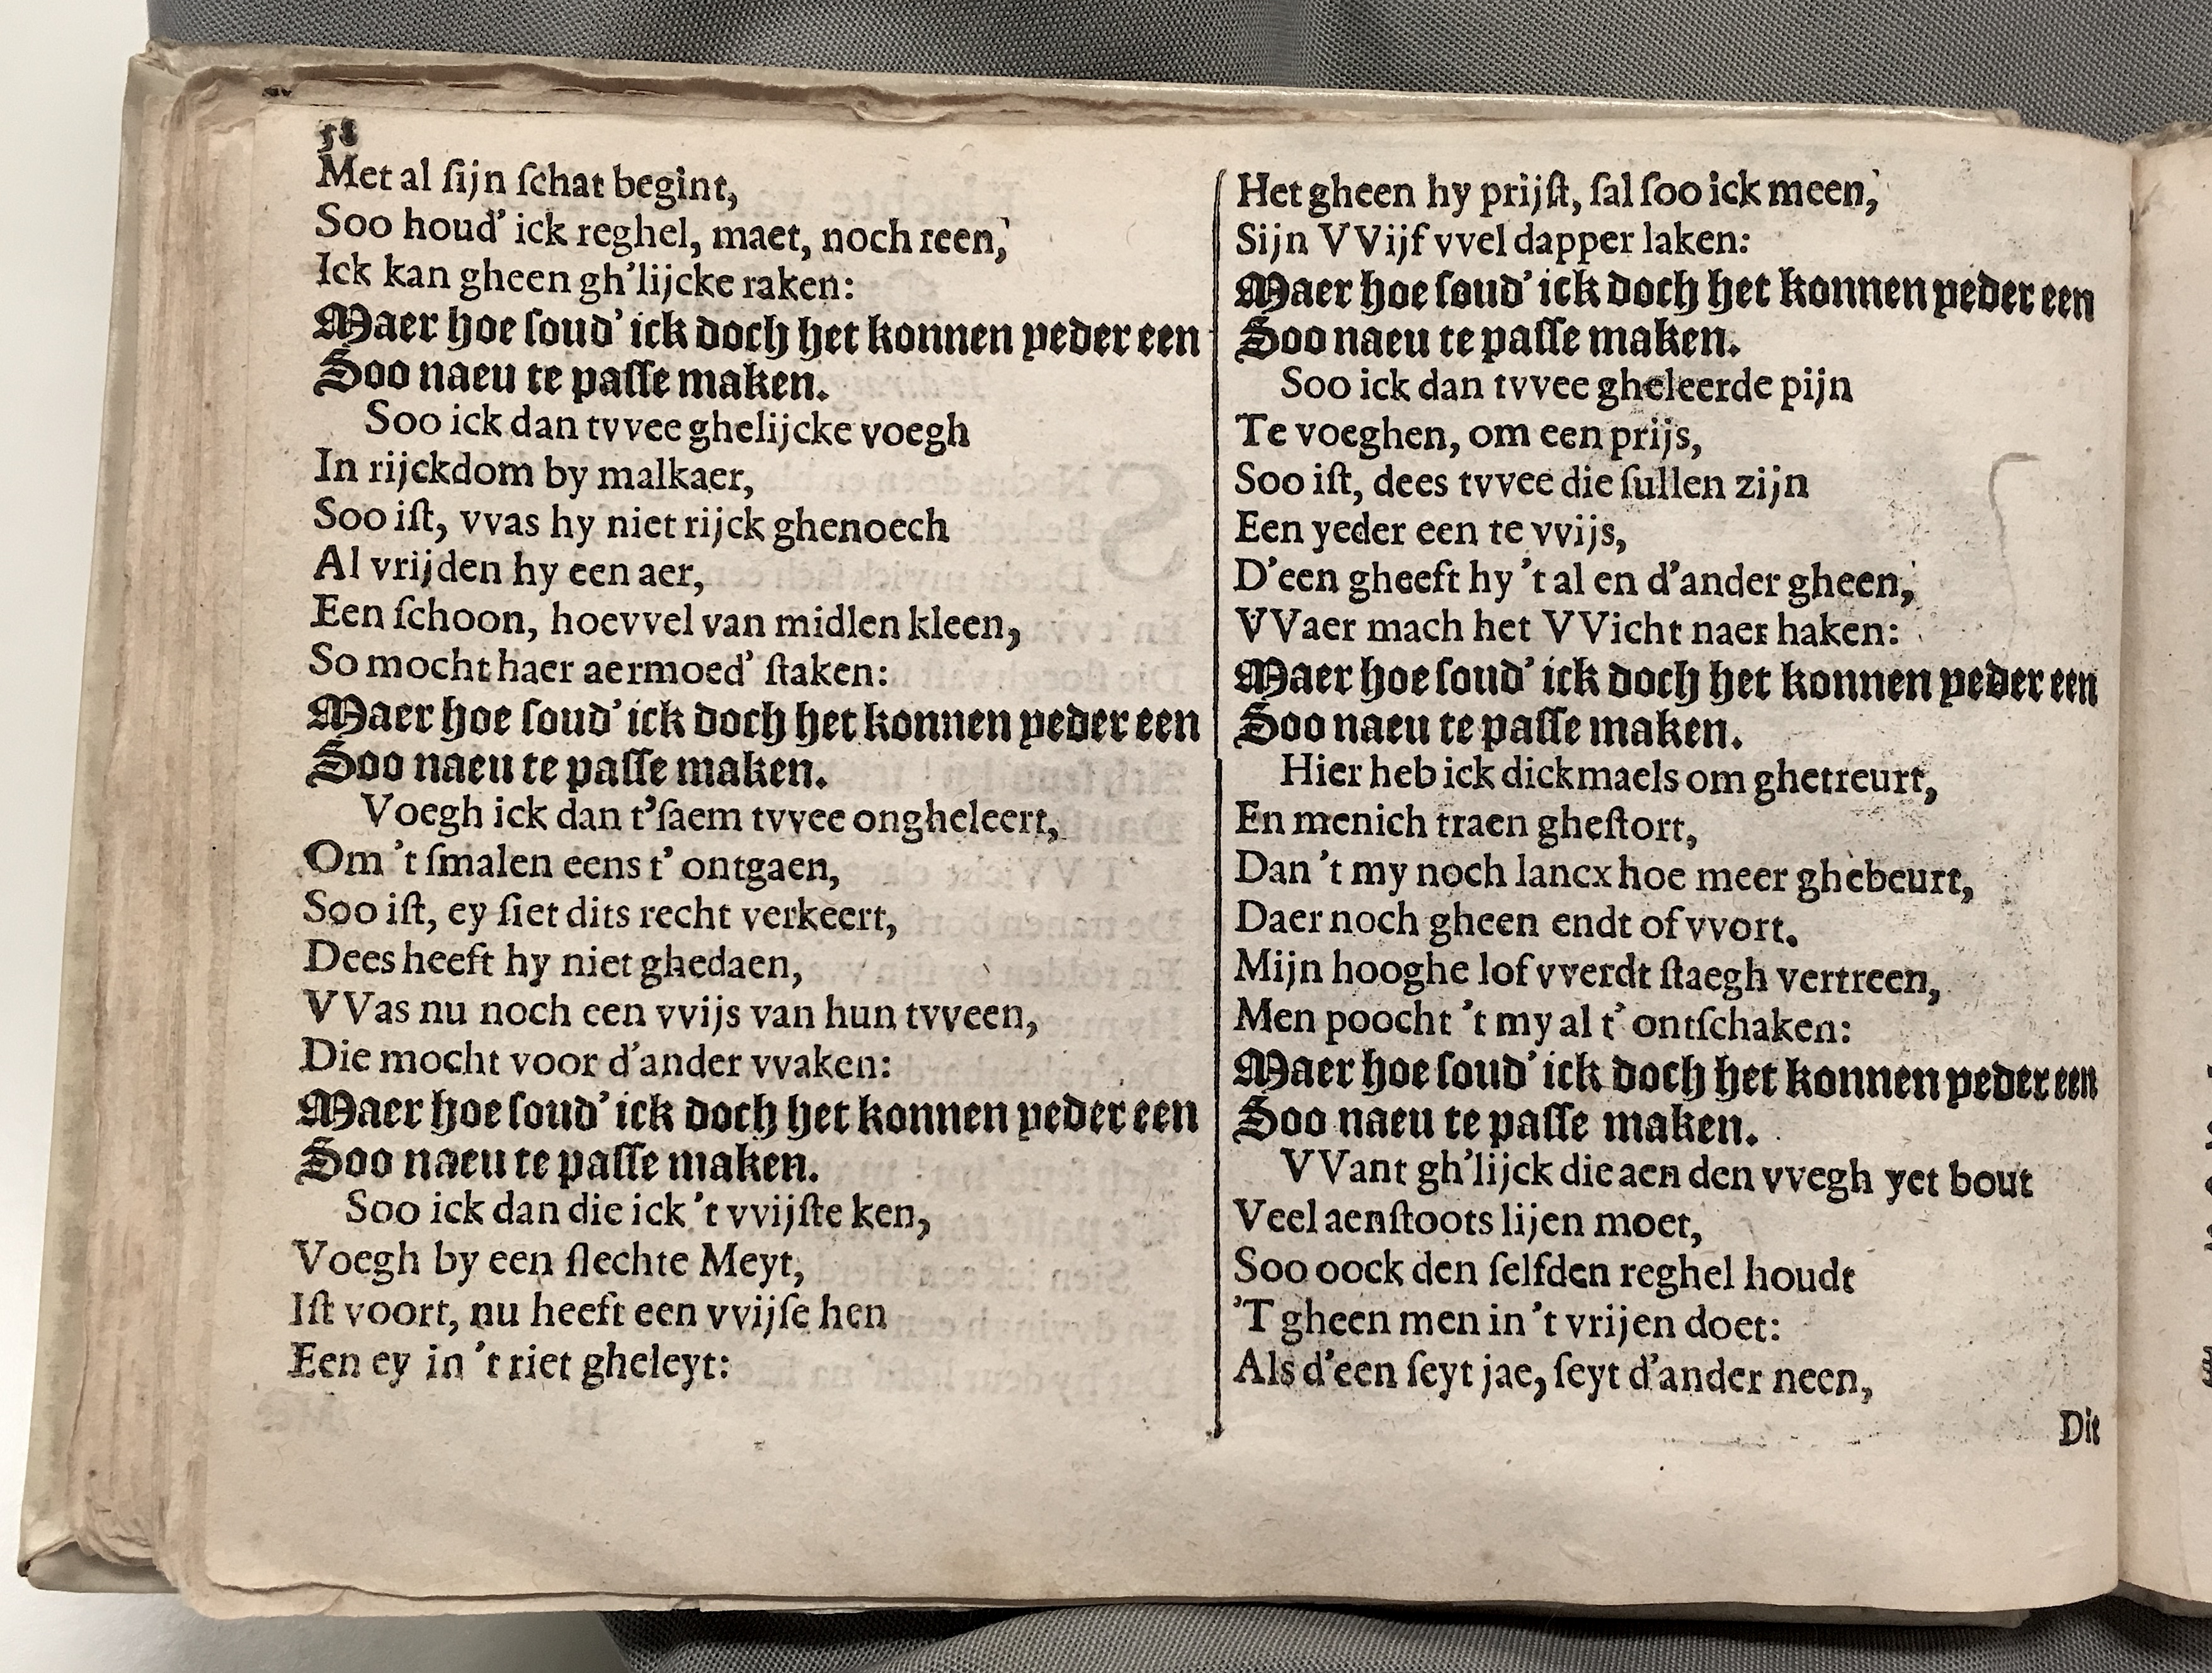 58
Met al ſijn ſchat begint,
Soo houd' ick reghel, maet, noch reen,
Ick kan gheen gh'lijcke raken:
Maer hoe ſoud' ick doch het konnen yeder een
Soo naeu te paſſe maken.
Soo ick dan tvvee ghelijcke voegh
In rijckdom by malkaer,
Soo iſt, vvas hy niet rijck ghenoech
Al vrijden hy een aer,
Een ſchoon, hoevvel van midlen kleen,
So mocht haer aermoed' ſtaken:
Maer hoe ſoud' ick doch het konnen yeder een
Soo naeu te paſſe maken.
Voegh ick dan t'ſaem tvvee ongheleert,
Om 't ſmalen eens t' ontgaen,
Soo iſt, ey ſiet dits recht verkeert,
Dees heeft hy niet ghedaen,
VVas nu noch een vvijs van hun tvveen,
Die mocht voor d'ander vvaken:
Maer hoe ſoud' ick doch het konnen yeder een
Soo naeu te paſſe maken.
Soo ick dan die ick 't vvijſte ken,
Voegh by een ſlechte Meyt,
Iſt voort, nu heeft een vvijſe hen
Een ey in 't riet gheleyt:
Het gheen hy prijſt, ſal ſoo ick meen,
Sijn VVijf vvel dapper laken:
Maer hoe ſoud' ick doch het konnen yeder een
Soo naeu te paſſe maken.
Soo ick dan tvvee gheleerde pijn
Te voeghen, om een prijs,
Soo iſt, dees tvvee die ſullen zijn
Een yeder een te vvijs,
D'een gheeft hy 't al en d'ander gheen,
VVaer mach het VVicht naer haken:
Maer hoe ſoud' ick doch het konnen yeder een
Soo naeu te paſſe maken.
Hier heb ick dickmaels om ghetreurt,
En menich traen gheſtort,
Dan 't my noch lancx hoe meer ghebeurt,
Daer noch gheen endt of vvort.
Mijn hooghe lof vverdt ſtaegh vertreen,
Men poocht 't my al t' ontſchaken:
Maer hoe ſoud' ick doch het konnen yeder een
Soo naeu te paſſe maken.
VVant gh'lijck die aen den vvegh yet bout
Veel aenſtoots lijen moet,
Soo oock den ſelfden reghel houdt
'T gheen men in 't vrijen doet:
Als d'een ſeyt jae, ſeyt d'ander neen,
Dit